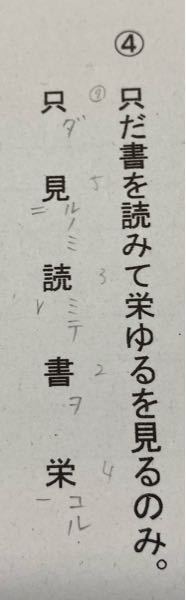 ④ 只だ書を読みて栄ゆるを見るのみ。
只ダ見ルノミ二読ミテレ書ヲ栄コル一
① 5 3 2 4